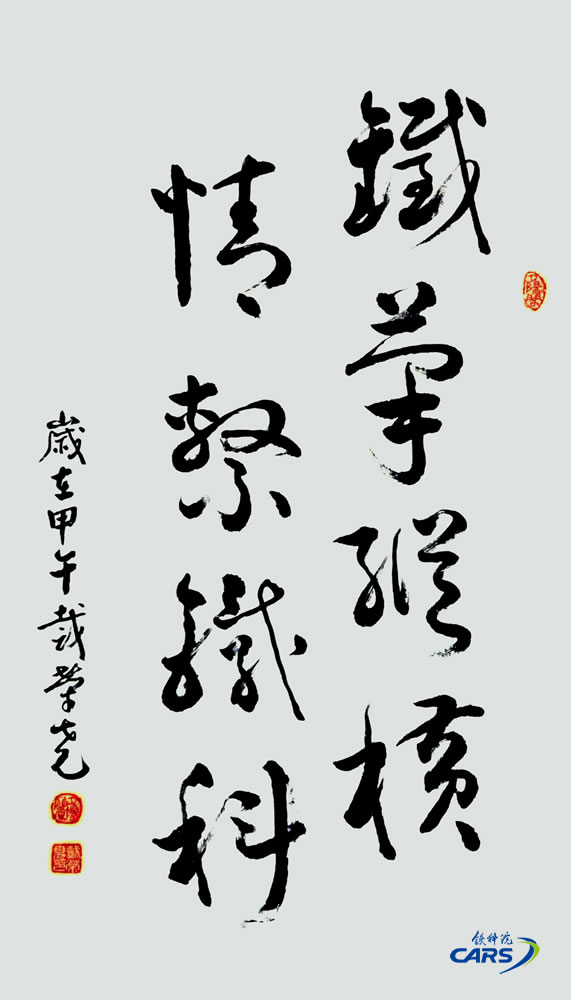 鐵筆縱横
情繫鐵科
歲在甲午戴榮堯
铁科院
CARS